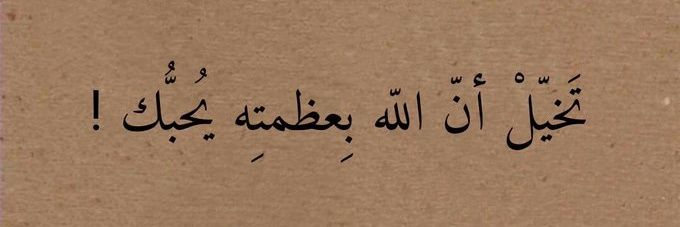 تَخيّلْ أنّ اللّه بِعظمتِه يُحبُّك !